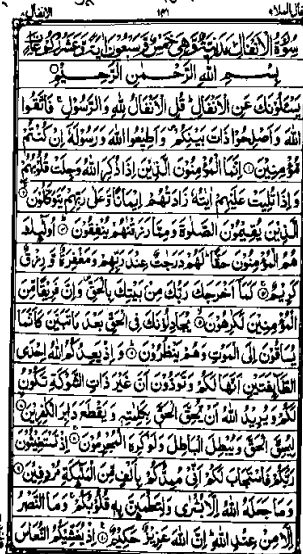 قال الملاء ٩ ١٣١ الانفال ٨
سُوْرَةُ الْاَنْفَالِ مَدَنِيَّةٌ وَّهِيَ خَمْسٌ وَّسَبْعُوْنَ اٰيَةً وَّعَشْرُ رُكُوْعَاتٍ
بِسْمِ اللهِ الرَّحْمٰنِ الرَّحِيْمِ
يَسْئَلُوْنَكَ عَنِ الْاَنْفَالِ قُلِ الْاَنْفَالُ لِلّٰهِ وَالرَّسُوْلِ فَاتَّقُوا
اللهَ وَاَصْلِحُوْا ذَاتَ بَيْنِكُمْ وَاَطِيْعُوا اللهَ وَرَسُوْلَهٗٓ اِنْ كُنْتُمْ
مُّؤْمِنِيْنَ ۝ اِنَّمَا الْمُؤْمِنُوْنَ الَّذِيْنَ اِذَا ذُكِرَ اللهُ وَجِلَتْ قُلُوْبُهُمْ
وَاِذَا تُلِيَتْ عَلَيْهِمْ اٰيٰتُهٗ زَادَتْهُمْ اِيْمَانًا وَّعَلٰى رَبِّهِمْ يَتَوَكَّلُوْنَ ۝
الَّذِيْنَ يُقِيْمُوْنَ الصَّلٰوةَ وَمِمَّا رَزَقْنٰهُمْ يُنْفِقُوْنَ ۝ اُولٰٓئِكَ
هُمُ الْمُؤْمِنُوْنَ حَقًّا لَهُمْ دَرَجٰتٌ عِنْدَ رَبِّهِمْ وَمَغْفِرَةٌ وَّرِزْقٌ
كَرِيْمٌ ۝ كَمَآ اَخْرَجَكَ رَبُّكَ مِنْۢ بَيْتِكَ بِالْحَقِّ وَاِنَّ فَرِيْقًا مِّنَ
الْمُؤْمِنِيْنَ لَكٰرِهُوْنَ ۝ يُجَادِلُوْنَكَ فِي الْحَقِّ بَعْدَ مَا تَبَيَّنَ كَاَنَّمَا
يُسَاقُوْنَ اِلَى الْمَوْتِ وَهُمْ يَنْظُرُوْنَ ۝ وَاِذْ يَعِدُكُمُ اللهُ اِحْدَى
الطَّآئِفَتَيْنِ اَنَّهَا لَكُمْ وَتَوَدُّوْنَ اَنَّ غَيْرَ ذَاتِ الشَّوْكَةِ تَكُوْنُ
لَكُمْ وَيُرِيْدُ اللهُ اَنْ يُّحِقَّ الْحَقَّ بِكَلِمٰتِهٖ وَيَقْطَعَ دَابِرَ الْكٰفِرِيْنَ ۝
لِيُحِقَّ الْحَقَّ وَيُبْطِلَ الْبَاطِلَ وَلَوْ كَرِهَ الْمُجْرِمُوْنَ ۝ اِذْ تَسْتَغِيْثُوْنَ
رَبَّكُمْ فَاسْتَجَابَ لَكُمْ اَنِّيْ مُمِدُّكُمْ بِاَلْفٍ مِّنَ الْمَلٰٓئِكَةِ مُرْدِفِيْنَ ۝
وَمَا جَعَلَهُ اللهُ اِلَّا بُشْرٰى وَلِتَطْمَئِنَّ بِهٖ قُلُوْبُكُمْ وَمَا النَّصْرُ
اِلَّا مِنْ عِنْدِ اللهِ اِنَّ اللهَ عَزِيْزٌ حَكِيْمٌ ۝ اِذْ يُغَشِّيْكُمُ النُّعَاسَ